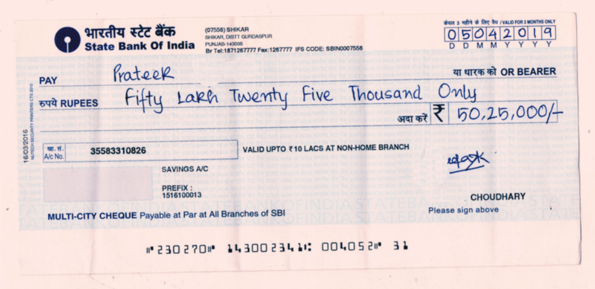 भारतीय स्टेट बैंक
State Bank Of India
(07556) SHIKAR
SHIKAR, DISTT GURDASPUR
PUNJAB-143005
Br Tel:1871267777 Fax:1267777 IFS CODE: SBIN0007556
केवल 3 महीने के लिए वैध / VALID FOR 3 MONTHS ONLY
05042019
D D M M Y Y Y Y
PAY Prateek या धारक को OR BEARER
रुपये RUPEES Fifty Lakh Twenty Five Thousand Only
अदा करें ₹ 50,25,000/-
खा. सं.
A/c No. 35583310826
VALID UPTO ₹ 10 LACS AT NON-HOME BRANCH
SAVINGS A/C
PREFIX :
1516100013
CHOUDHARY
Please sign above
MULTI-CITY CHEQUE Payable at Par at All Branches of SBI
⑈230270⑈ 143002341⑆ 004052⑈ 31
16/03/2016